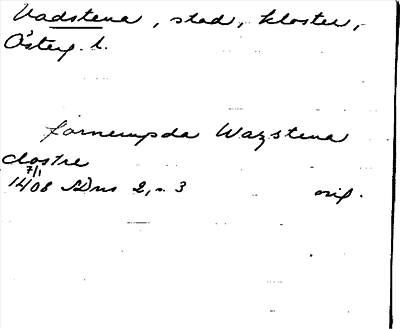 Vadstena, stad, kloster,
Österg. l.
fornempda Wazstena
clostre
7/1
1408 SDns 2, s. 3 orig.